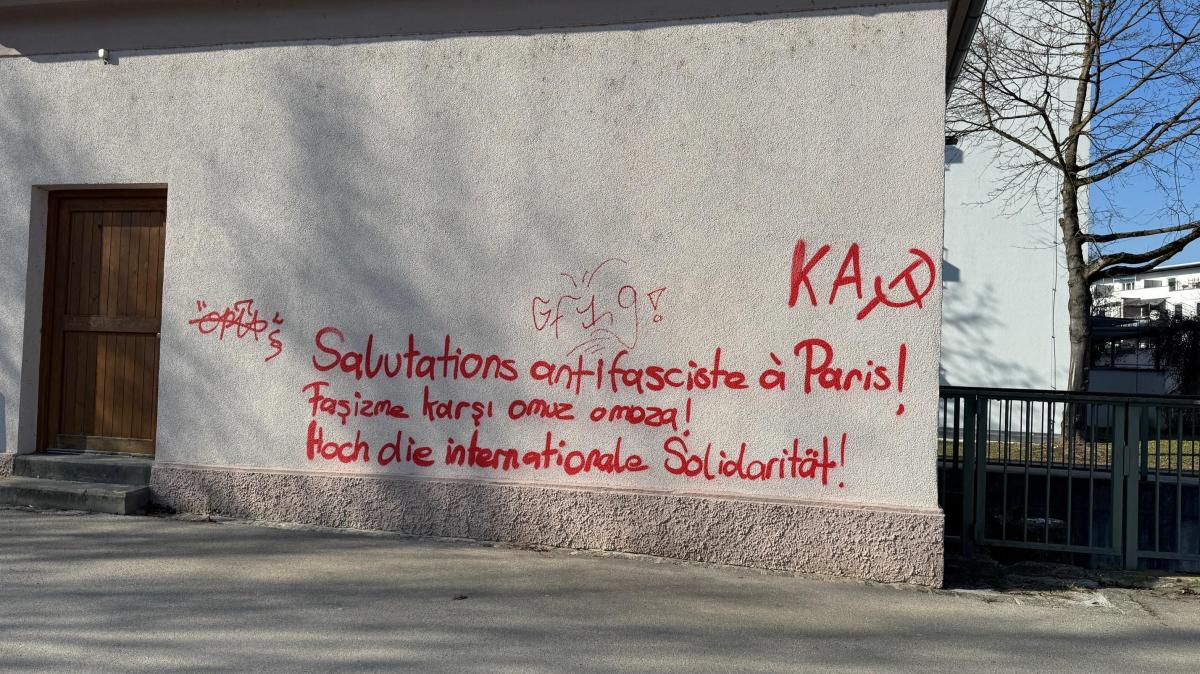 KA
GF19!
Salutations antifasciste à Paris!
Faşizme karşı omuz omoza!
Hoch die internationale Solidarität!